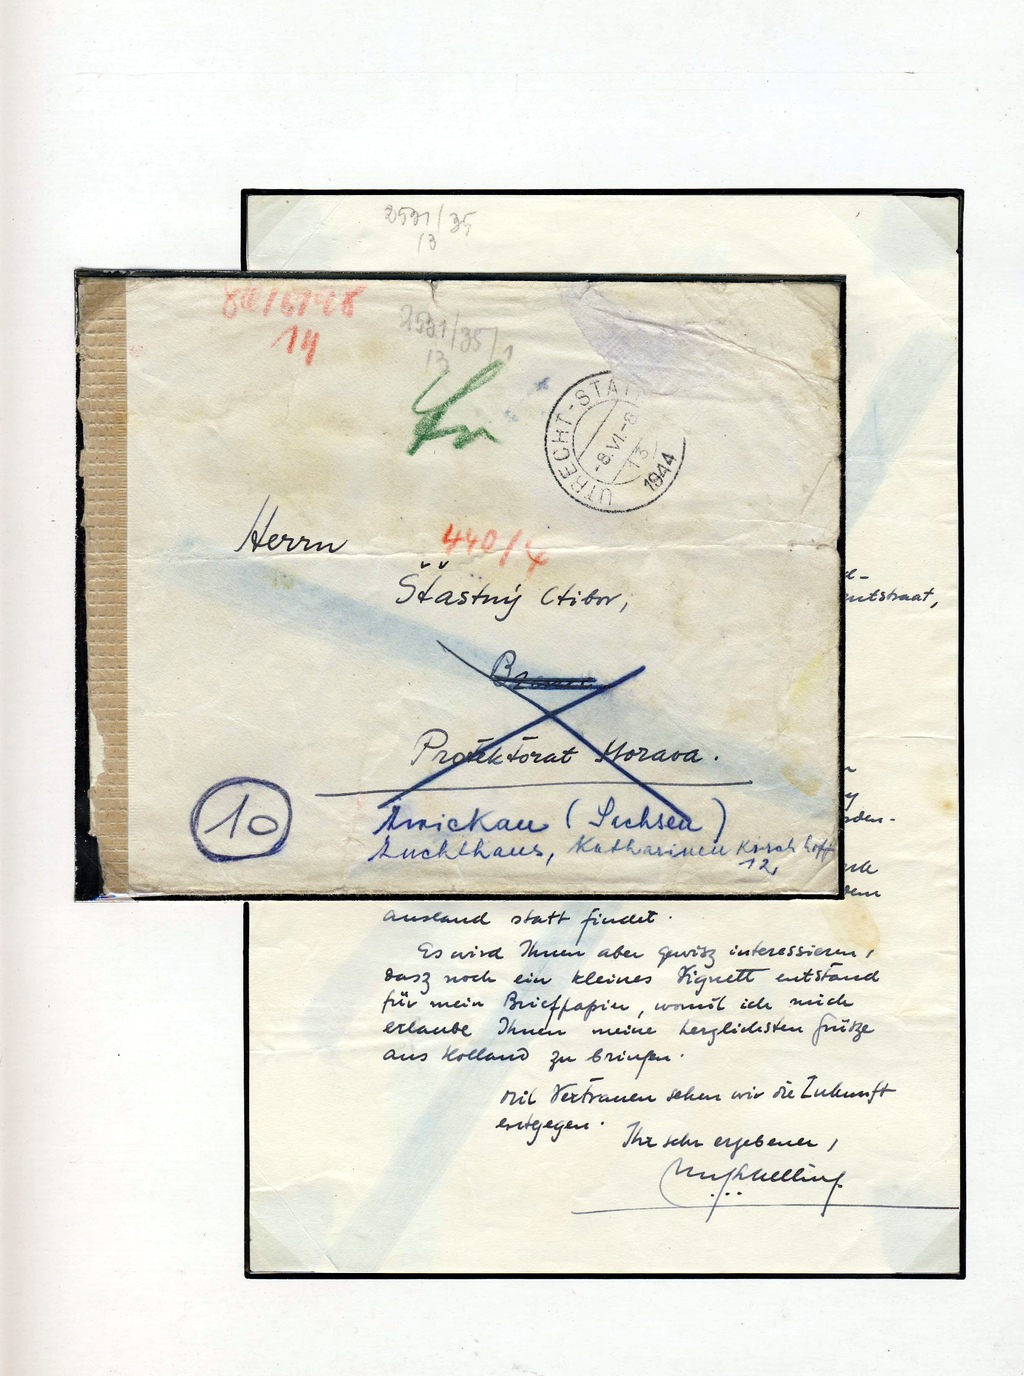 2531/35
13
14
2531/35/1
13
UTRECHT-STA
-8.VI.-8
13
1944
Herrn
440/4
Šťastný Ctibor,
Protektorat Morava.
10
Zwickau (Sachsen)
Zuchthaus, Katharinen Kirchhoff
12,
entstraat,
den-
dem
ausland statt findet.
Es wird Ihnen aber gewisz interessieren,
dasz noch ein kleines Vignett entstand
für mein Briefpapier, womit ich mich
erlaube Ihnen meine herzlichsten Grüsze
aus Holland zu bringen.
Mit Vertrauen sehen wir die Zukunft
entgegen.
Ihr sehr ergebener,